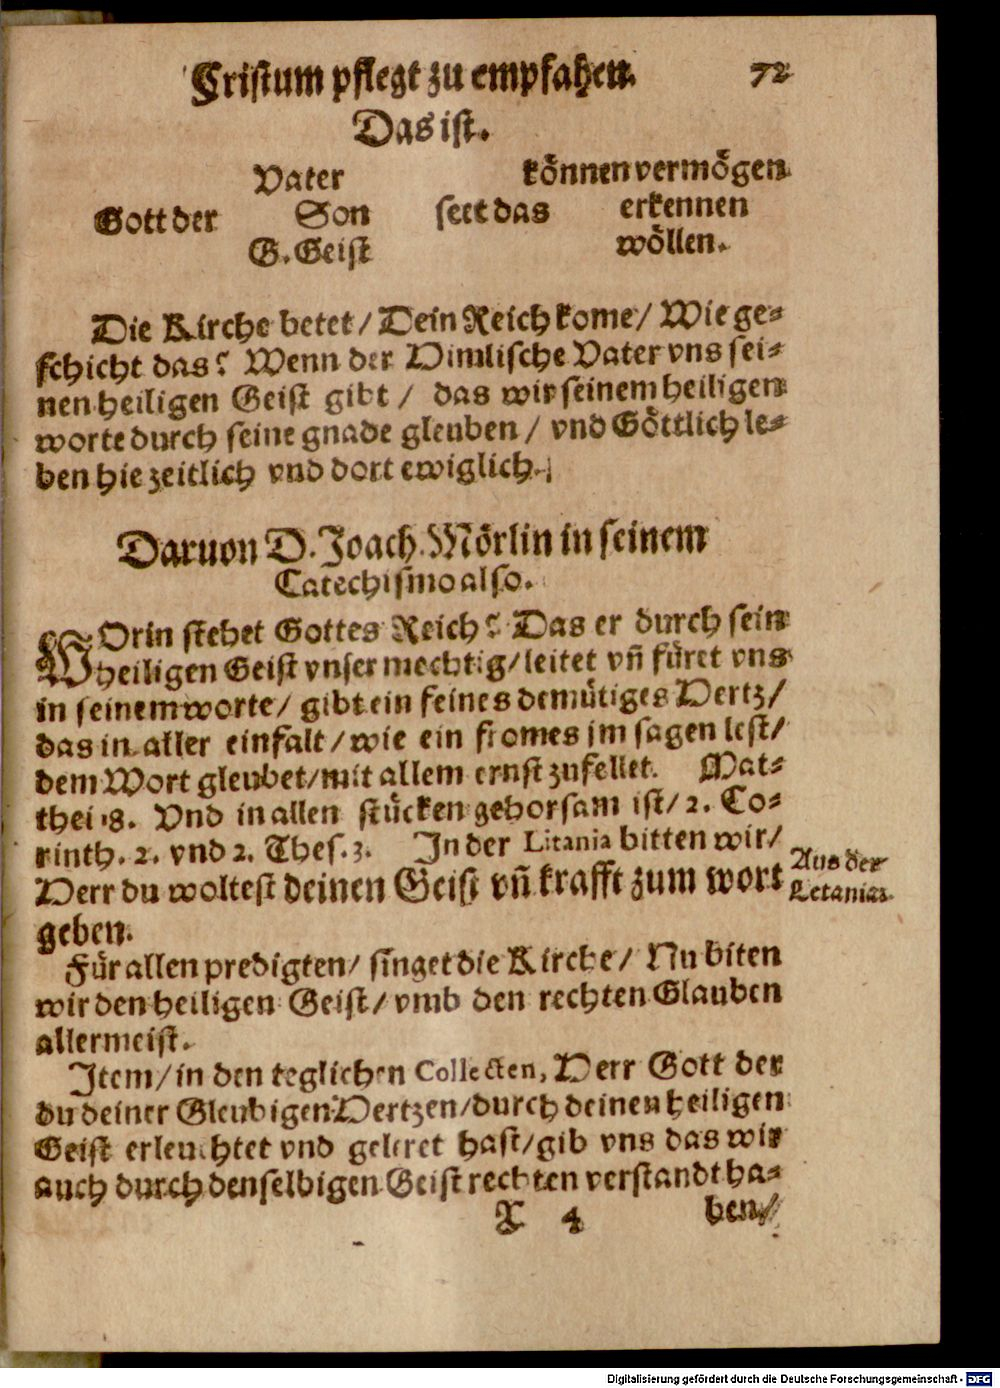 Cristum pflegt zu empfahen. 72
Das ist.
Vater können vermögen
Gott der Son sect das erkennen
G. Geist wöllen.
Die Kirche betet / Dein Reich kome / Wie ge⸗
schicht das? Wenn der Himlische Vater vns sei⸗
nen heiligen Geist gibt / das wir seinem heiligen
worte durch seine gnade gleuben / vnd Göttlich le⸗
ben hie zeitlich vnd dort ewiglich.
Daruon D. Joach. Mörlin in seinem
Catechismo also.
WOrin stehet Gottes Reich? Das er durch sein
heiligen Geist vnser mechtig / leitet vñ füret vns
in seinem worte / gibt ein feines demütiges Hertz /
das in aller einfalt / wie ein fromes jm sagen lest /
dem Wort gleubet / mit allem ernst zufellet. Mat⸗
thei 18. Vnd in allen stücken gehorsam ist / 2. Co⸗
rinth. 2. vnd 2. Thes. 3. In der Litania bitten wir /
Herr du woltest deinen Geist vñ krafft zum wort
geben.
Aus der
Letania.
Für allen predigten / singet die Kirche / Nu biten
wir den heiligen Geist / vmb den rechten Glauben
allermeist.
Item / in den teglichen Collecten, Herr Gott der
du deiner Gleubigen Hertzen / durch deinen heiligen
Geist erleuchtet vnd geleret hast / gib vns das wir
auch durch denselbigen Geist rechten verstandt ha⸗
T 4 ben /
Digitalisierung gefördert durch die Deutsche Forschungsgemeinschaft - DFG